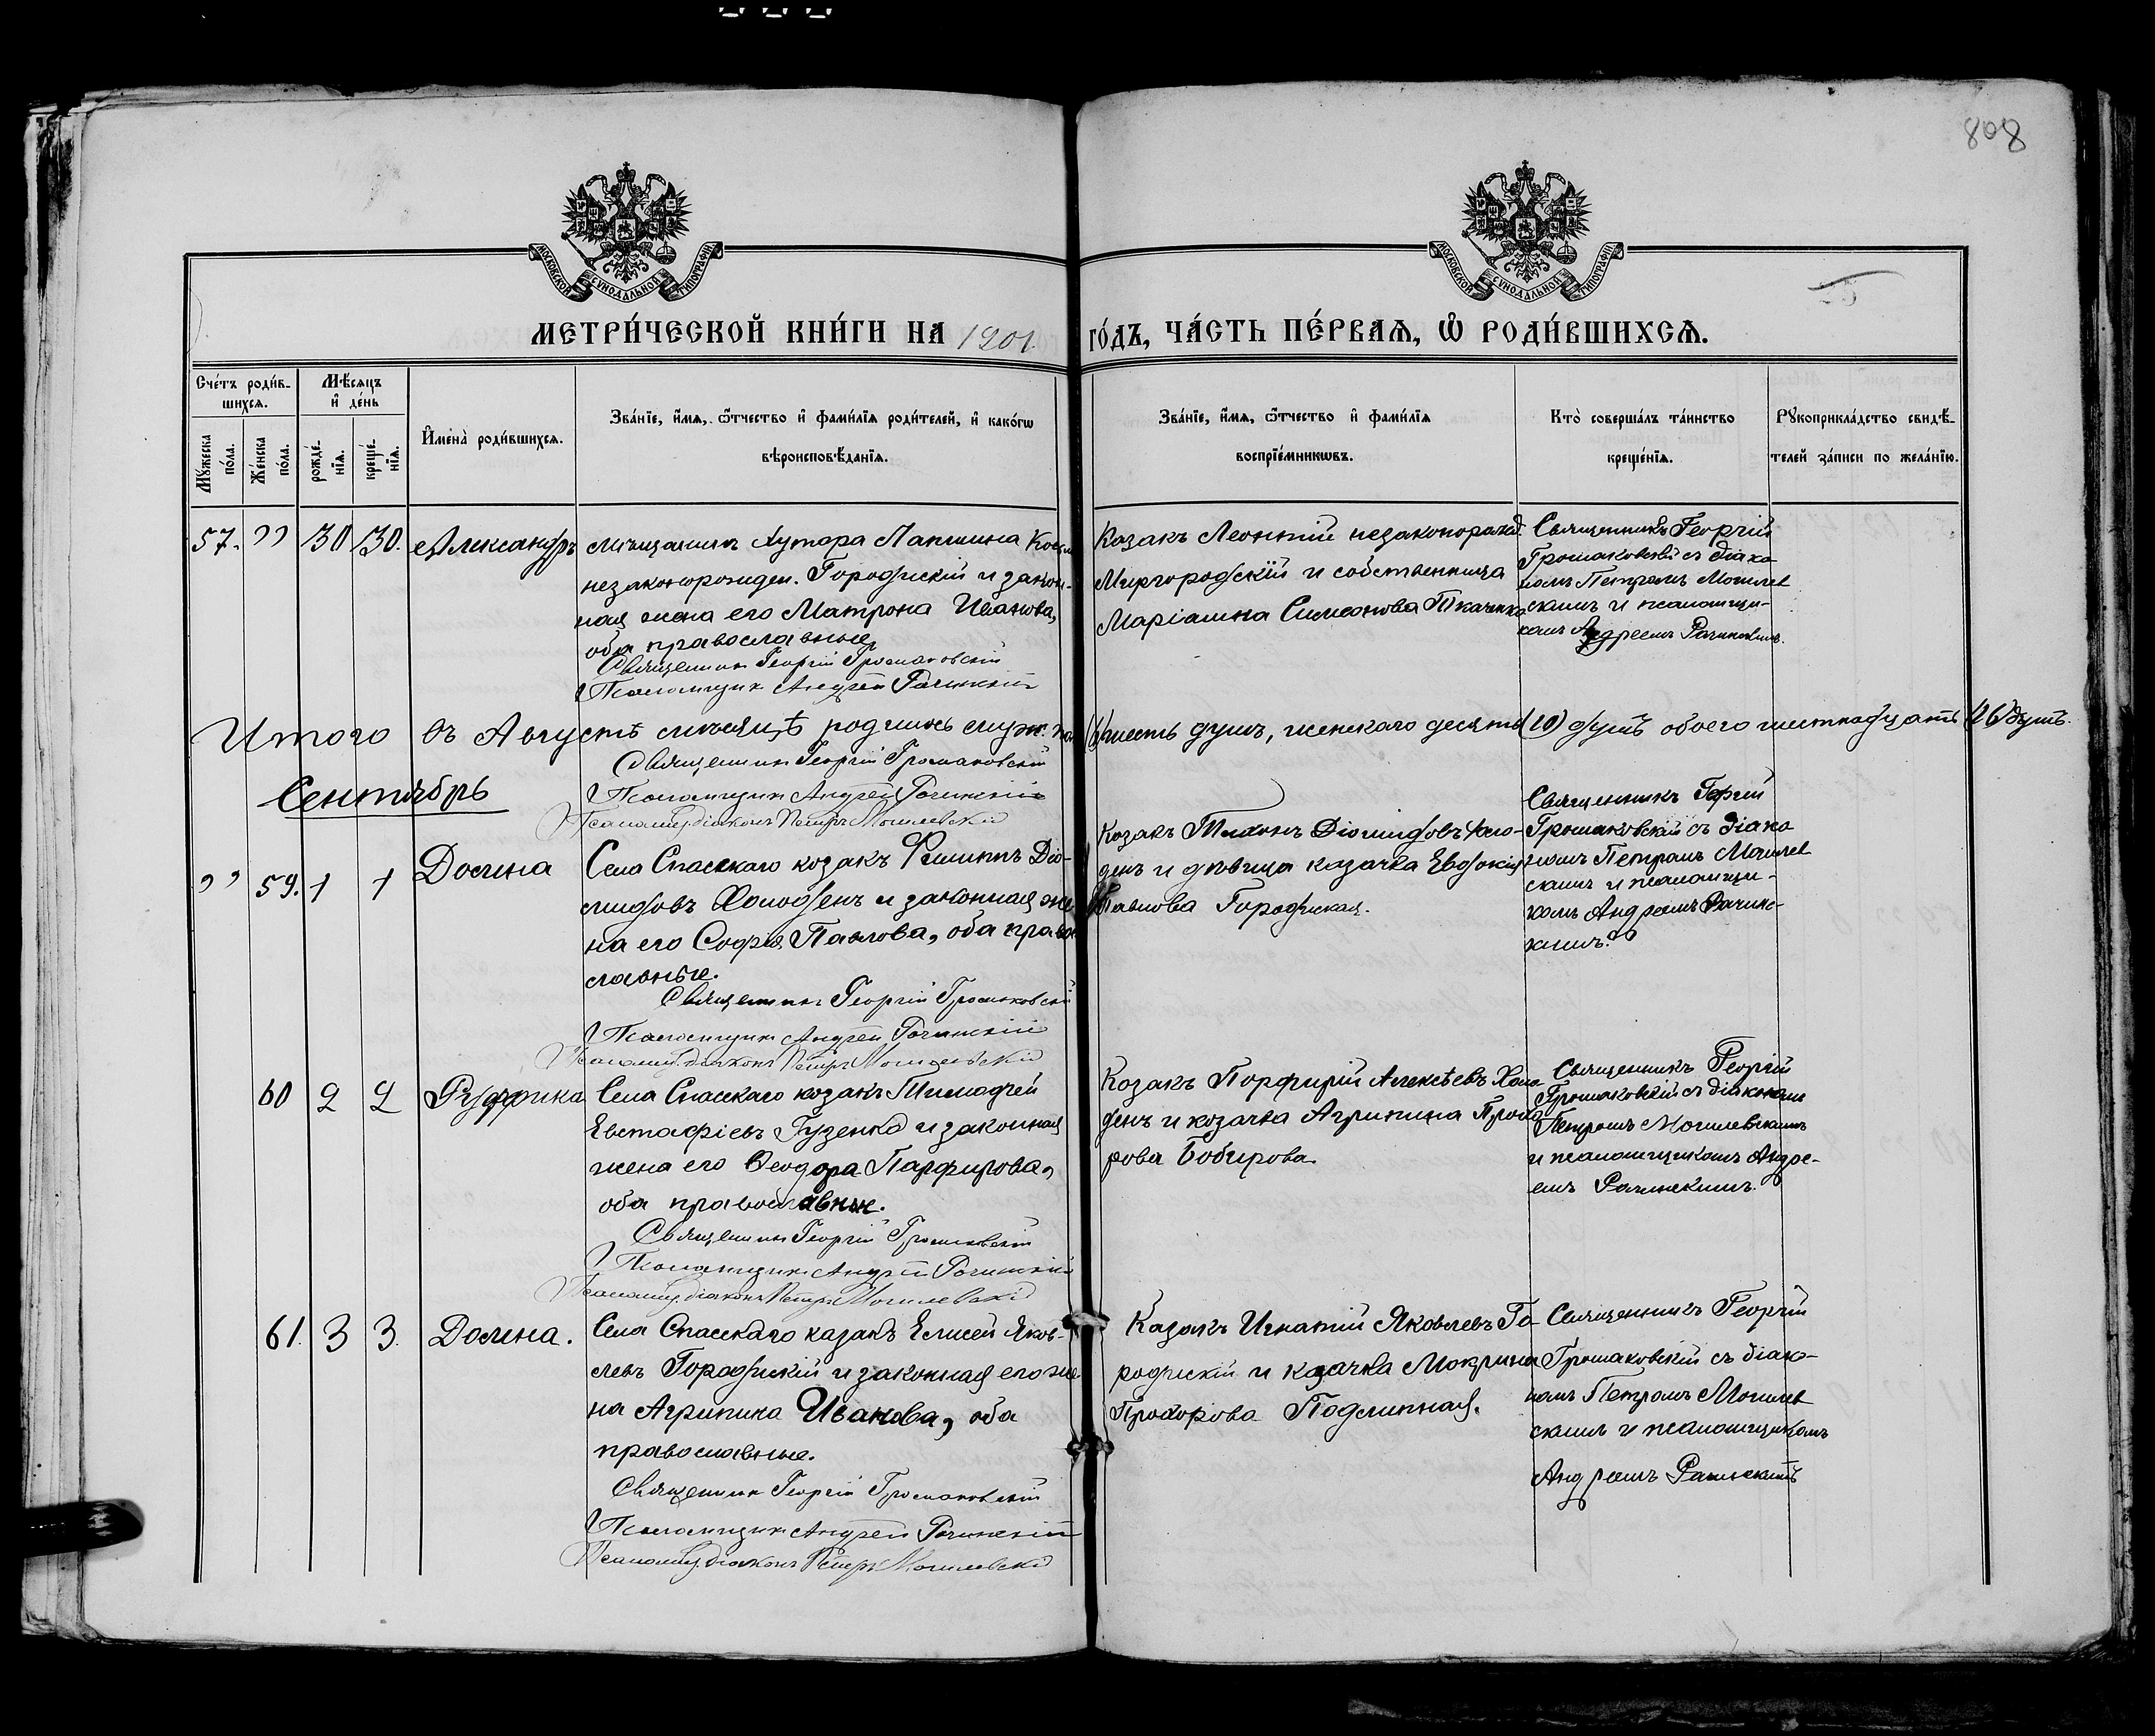 808
МОСКОВСКОЙ СѴНОДАЛЬНОЙ ТИПОГРАФІИ
МОСКОВСКОЙ СѴНОДАЛЬНОЙ ТИПОГРАФІИ
МЕТРИ́ЧЕСКОЙ КНИ́ГИ НА 1901 ГО́ДЪ, ЧА́СТЬ ПЕ́РВАѦ, Ѡ҆ РОДИ́ВШИХСѦ.
Сче́тъ роди́в-
шихсѧ.
Мѣ́сѧцъ
и҆ де́нь
Мꙋ́жеска по́ла.
Же́нска по́ла.
рожде́-нїѧ.
креще́-нїѧ.
И҆мена̀ роди́вшихсѧ.
Зва́нїе, и҆́мѧ, ѻ҆́тчество и҆ фами́лїѧ роди́телей, и҆ како́гѡ
вѣроисповѣ́данїѧ.
Зва́нїе, и҆́мѧ, ѻ҆́тчество и҆ фами́лїѧ
воспрїе́мникѡвъ.
Кто̀ соверша́лъ та́инство
креще́нїѧ.
Рꙋкоприкла́дство свидѣ́-
телей за́писи по жела́нїю.
57. " 30 30. Александръ
мѣщанинъ хутора Лапшина
незаконорожден. Городискій и закон-
ная жена его Матрона Иванова,
оба православные,
Священникъ Георгій Громаковскій
Псаломщикъ Андрей Рачинскій
Казакъ Леонтій незаконорожд.
Миргородскій и собственница
Маріамна Симеонова Ткаченко
Священникъ Георгій
Громаковскій съ діако
номъ Петромъ Могилев
скимъ и псаломщи-
комъ Андреемъ Рачинскимъ.
Итого въ Августѣ мѣсяцѣ родилось муж. по (6) шесть душъ, женскаго десять (10) душъ обоего шестнадцать (16) душъ.
Священникъ Георгій Громаковскій
Псаломщикъ Андрей Рачинскій
Псаломщ. діаконъ Петръ Могилевскій
Сентябрь
" 59. 1 1 Домна
Села Спасскаго козакъ Филиппъ Діо-
мидовъ Холоденъ и законная же
на его Софія Павлова, оба право
славные.
Священникъ Георгій Громаковскій
Псаломщикъ Андрей Рачинскій
Псаломщ. діаконъ Петръ Могилевскій
Козакъ Тихонъ Діомидовъ Холо-
денъ и дѣвица казачка Евдокія
Павлова Городиская.
Священникъ Георгій
Громаковскій съ діако
номъ Петромъ Могилев
скимъ и псаломщи-
комъ Андреемъ Рачинс-
кимъ.
60 2 2 Руффина
Села Спасскаго козакъ Тимофей
Евстафіевъ Гузенко и законная
жена его Ѳеодора Парфирова,
оба православные.
Священникъ Георгій Громаковскій
Псаломщикъ Андрей Рачинскій
Псаломщ. діаконъ Петръ Могилевскій
Козакъ Порфирій Алексѣевъ Холо
денъ и козачка Агрипина Прохо
рова Бобирова.
Священникъ Георгій
Громаковскій съ діакономъ
Петромъ Могилевскимъ
и псаломщикомъ Андре-
емъ Рачинскимъ.
61. 3 3. Домна.
Села Спасскаго казакъ Елисей Яков-
левъ Городискій и законная его же
на Агрипина Иванова, оба
православные.
Священникъ Георгій Громаковскій
Псаломщикъ Андрей Рачинскій
Псаломщ. діаконъ Петръ Могилевскій
Казакъ Игнатій Яковлевъ Го-
родискій и казачка Мокрина
Прохорова Подлипная.
Священникъ Георгій
Громаковскій съ діако-
номъ Петромъ Могилев
скимъ и псаломщикомъ
Андреемъ Рачинскимъ